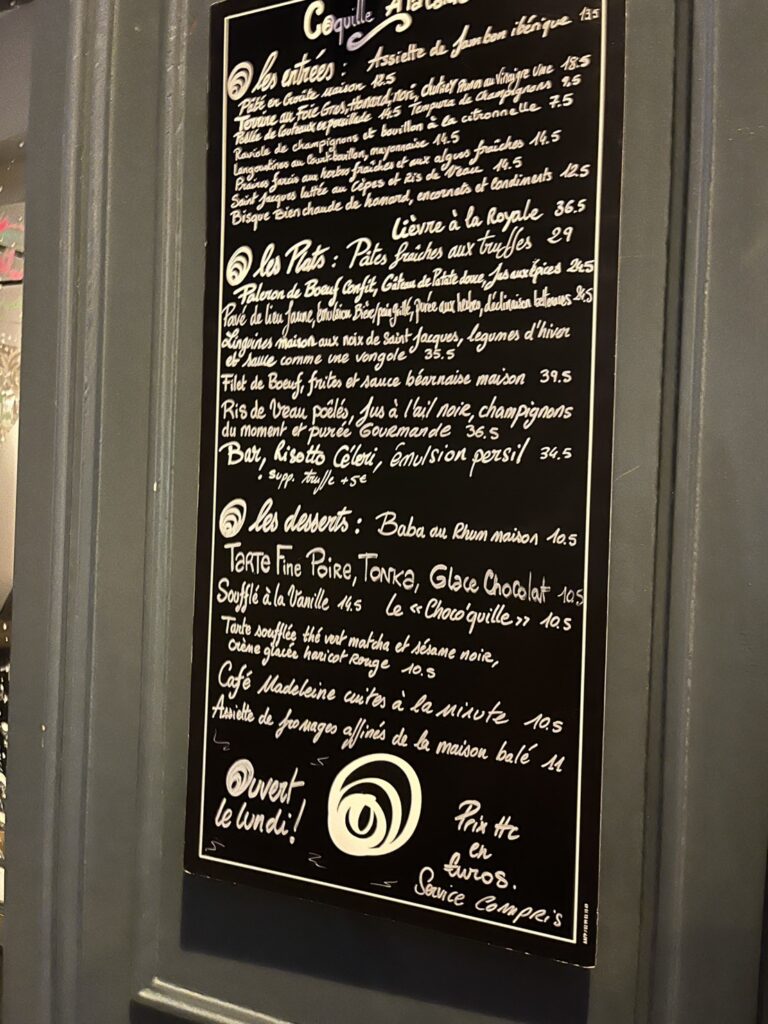 Coquille
les entrées : Assiette de Jambon ibérique 13.5
Pâté en Croûte maison 12.5
Terrine au Foie Gras, Homard, noix, chutney Prune au Vinaigre Vine 18.5
Poêlée de Couteaux en persillade 14.5 Tempura de Champignons 9.5
Raviole de champignons et bouillon à la citronnelle 7.5
Langoustines au Court-bouillon, mayonnaise 14.5
Praires farcis aux herbes fraîches et aux algues fraîches 14.5
Saint Jacques lutée au Cèpes et Ris de Veau 14.5
Bisque Bien chaude de homard, encornets et Condiments 12.5
Lièvre à la Royale 36.5
les Plats : Pâtes fraîches aux truffes 29
Paleron de Boeuf Confit, Gâteau de Patate douce, Jus aux épices 24.5
Pavé de lieu Jaune, émulsion Bière/pain grillé, purée aux herbes, déclinaison betteraves 24.5
Linguines maison aux noix de Saint Jacques, légumes d'hiver
et sauce comme une vongole 35.5
Filet de Boeuf, frites et sauce béarnaise maison 39.5
Ris de Veau poêlés, Jus à l'ail noir, champignons
du moment et purée Gourmande 36.5
Bar, Risotto Céleri, émulsion persil 34.5
• supp. truffe +5€
les desserts : Baba au Rhum maison 10.5
Tarte Fine Poire, Tonka, Glace Chocolat 10.5
Soufflé à la Vanille 14.5 Le « Choco'quille » 10.5
Tarte soufflée thé vert matcha et sésame noir,
crème glacée haricot Rouge 10.5
Café Madeleine cuites à la minute 10.5
Assiette de fromages affinés de la maison balé 11
Ouvert
le lundi !
Prix ttc
en
Euros.
Service Compris